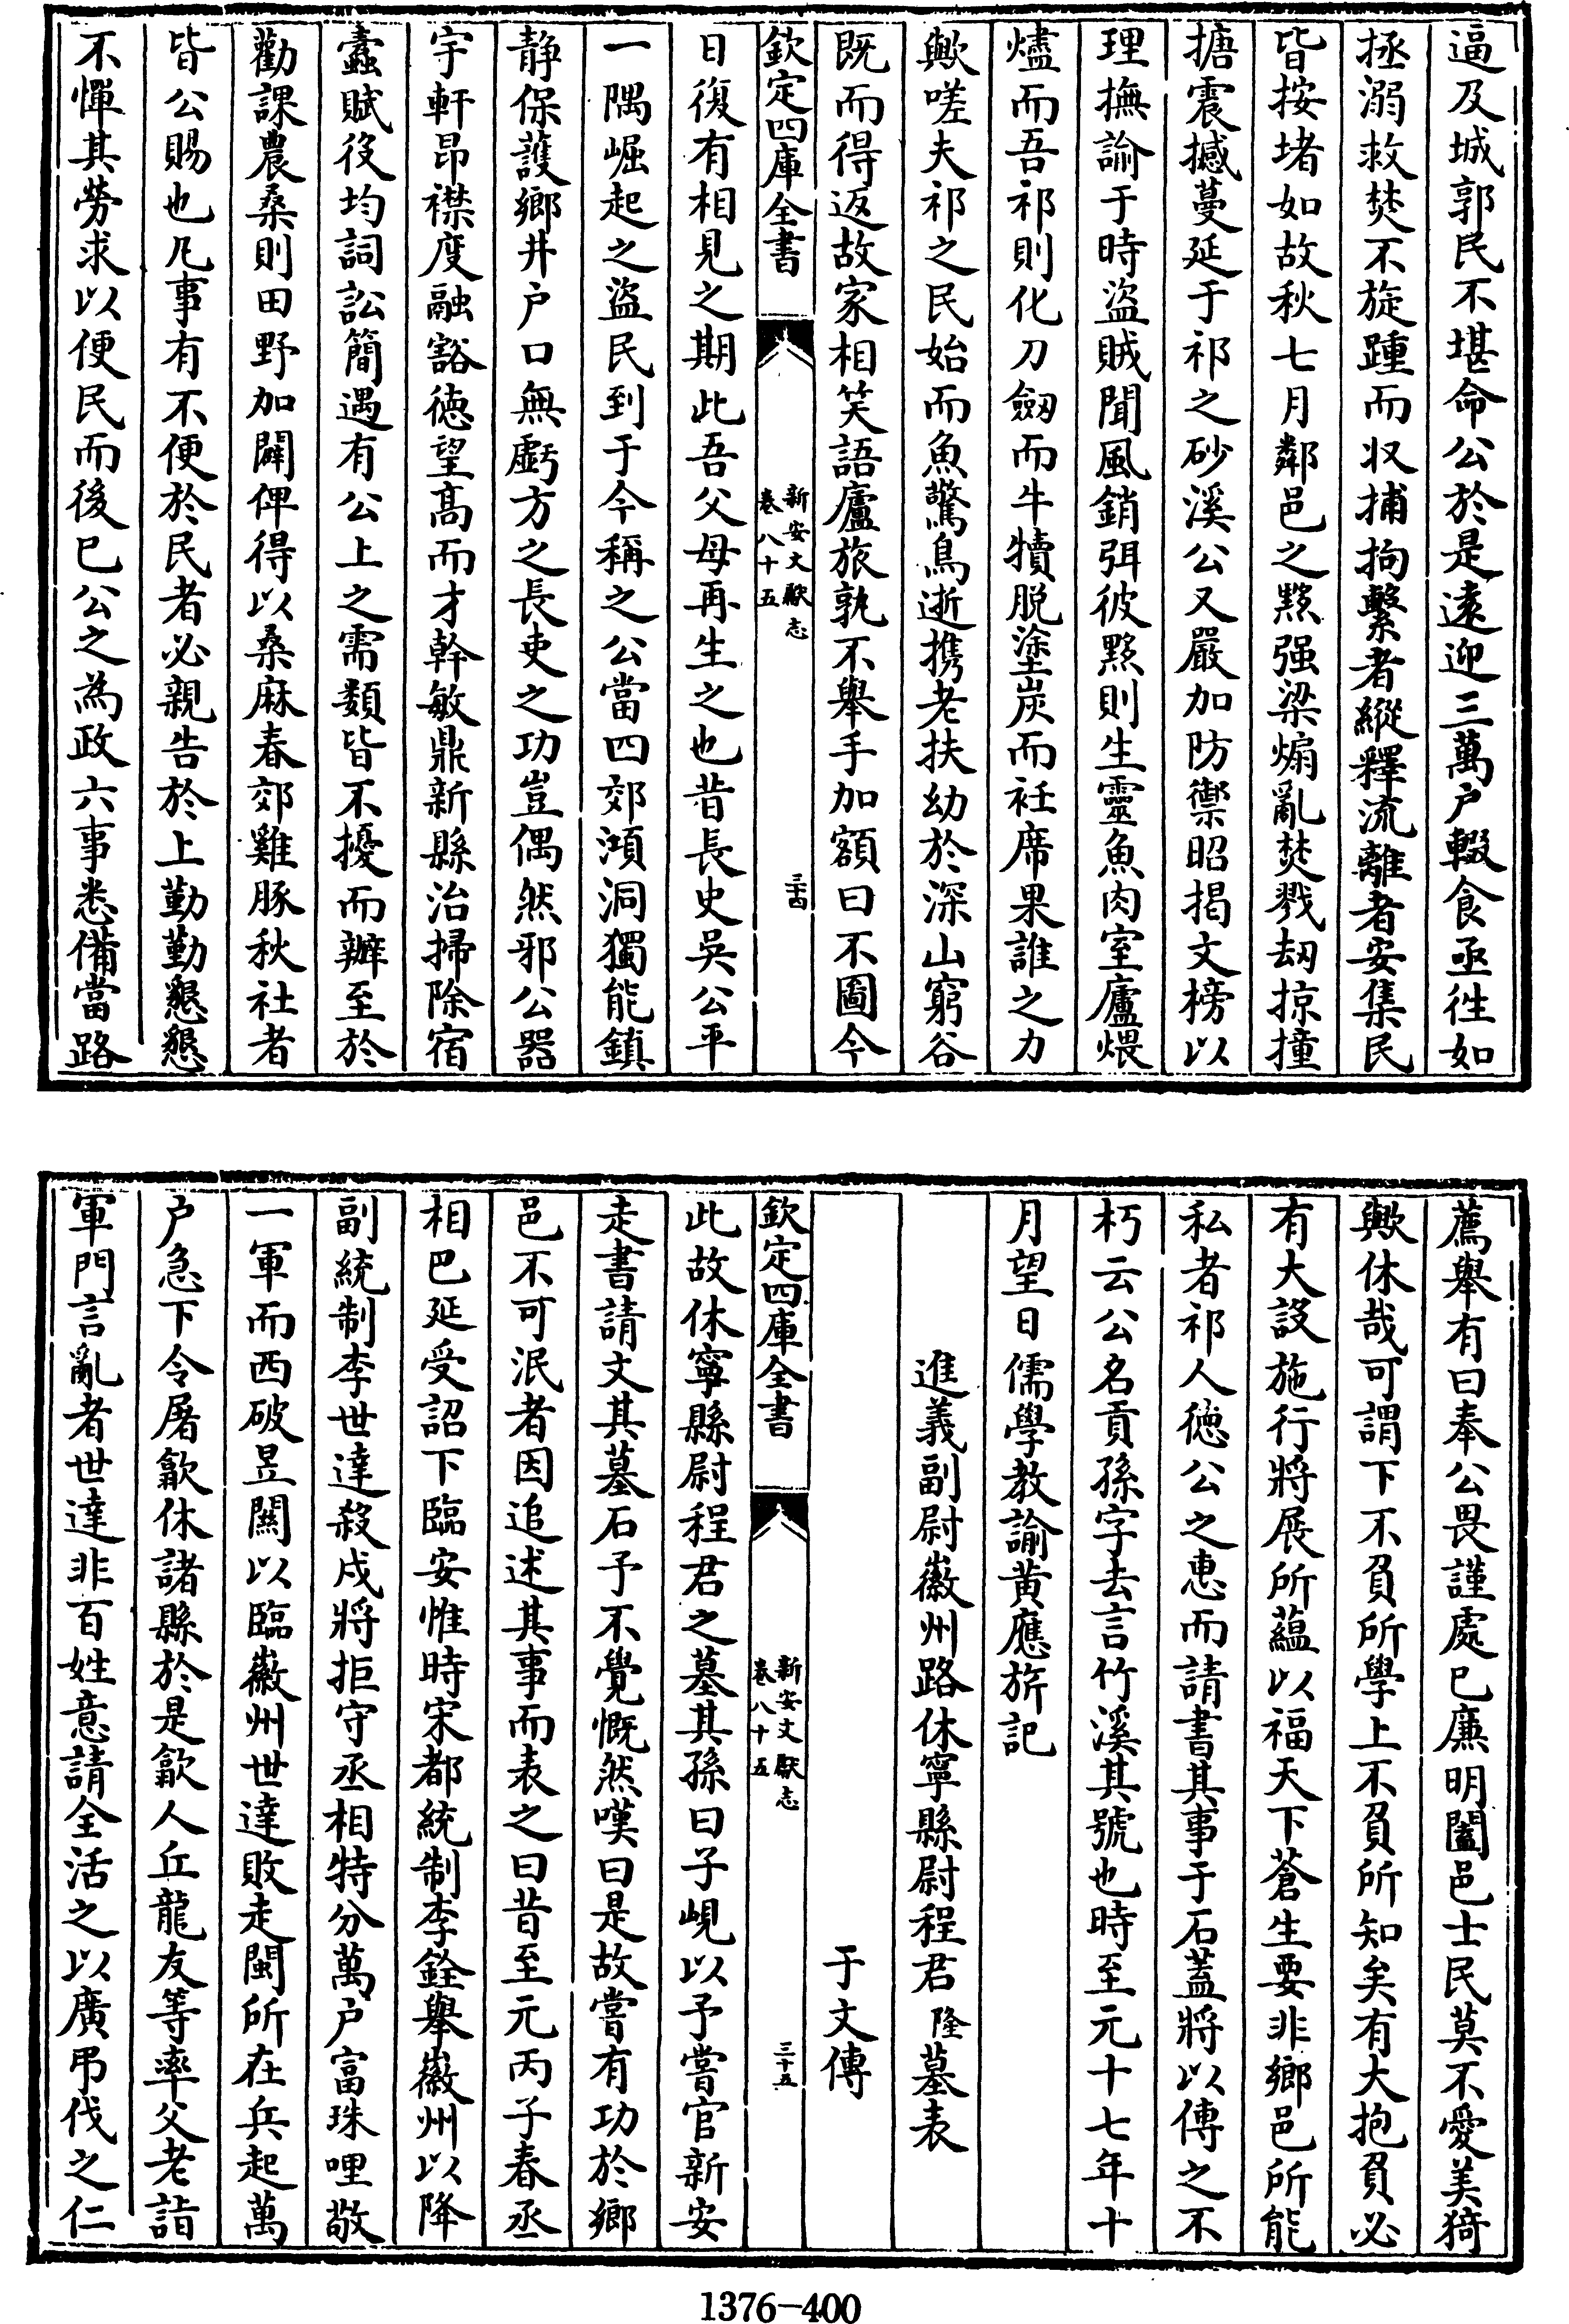 逼及城郭民不堪命公於是遠迎三萬户輟食亟徃如
拯溺救焚不旋踵而収捕拘繫者縱釋流離者安集民
皆按堵如故秋七月鄰邑之黟强梁煽亂焚戮刼掠撞
搪震撼蔓延于祁之砂溪公又嚴加防禦昭揭文榜以
理撫諭于時盜賊聞風銷弭彼黟則生靈魚肉室廬煨
燼而吾祁則化刀劒而牛犢脱塗炭而衽席果誰之力
歟嗟夫祁之民始而魚驚鳥逝携老扶幼於深山窮谷
既而得返故家相笑語廬旅孰不舉手加額曰不圖今
欽定四庫全書
新安文獻志
卷八十五
三十四
日復有相見之期此吾父母再生之也昔長史吳公平
一隅崛起之盜民到于今稱之公當四郊澒洞獨能鎮
静保護鄉井户口無虧方之長吏之功豈偶然邪公器
宇軒昂襟度融豁徳望髙而才幹敏鼎新縣治掃除宿
蠹賦役均詞訟簡遇有公上之需類皆不擾而辦至於
勸課農桑則田野加闢俾得以桑麻春郊雞豚秋社者
皆公賜也凡事有不便於民者必親告於上勤勤懇懇
不憚其勞求以便民而後已公之為政六事悉備當路
薦舉有曰奉公畏謹處已廉明闔邑士民莫不愛美猗
歟休哉可謂下不負所學上不負所知矣有大抱負必
有大設施行將展所蘊以福天下蒼生要非鄉邑所能
私者祁人徳公之惠而請書其事于石蓋將以傳之不
朽云公名貢孫字去言竹溪其號也時至元十七年十
月望日儒學教諭黄應旂記
進義副尉徽州路休寧縣尉程君隆墓表
于文傳
欽定四庫全書
新安文獻志
卷八十五
三十五
此故休寧縣尉程君之墓其孫曰子峴以予嘗官新安
走書請文其墓石予不覺慨然嘆曰是故嘗有功於鄉
邑不可泯者因追述其事而表之曰昔至元丙子春丞
相巴延受詔下臨安惟時宋都統制李銓舉徽州以降
副統制李世達殺戍將拒守丞相特分萬户富珠哩敬
一軍而西破昱關以臨徽州世達敗走閩所在兵起萬
户急下令屠歙休諸縣於是歙人丘龍友等率父老詣
軍門言亂者世達非百姓意請全活之以廣弔伐之仁
1376-400